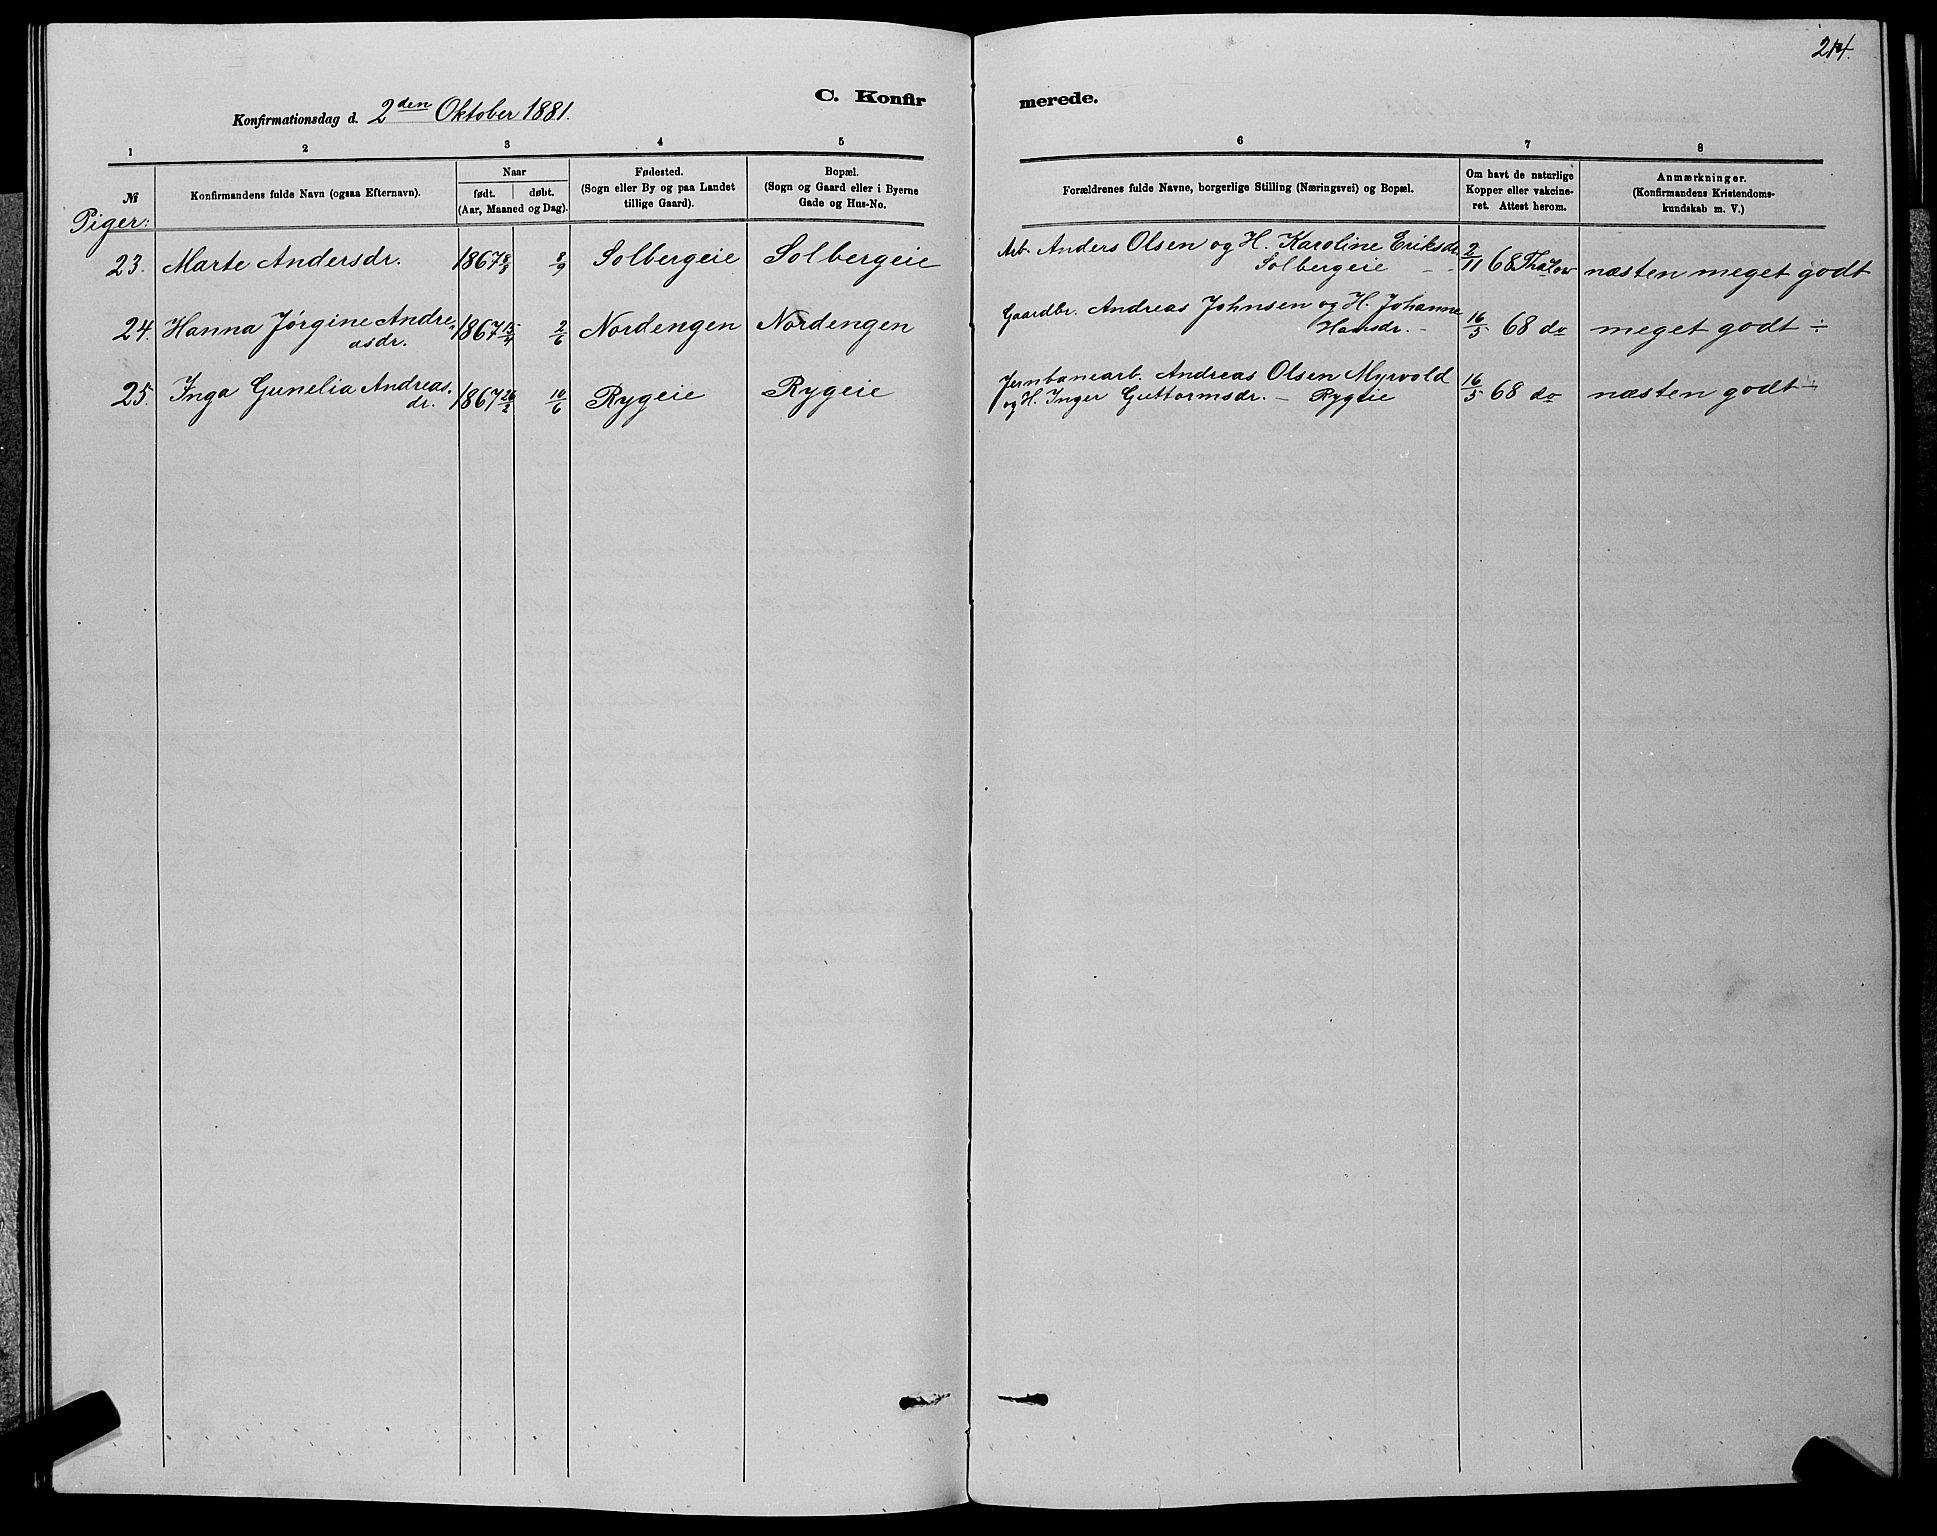 214.
C. Konfirmerede.
Konfirmationsdag d. 2den Oktober 1881.
1 2 3 4 5 6 7 8
№ Konfirmandens fulde Navn (ogsaa Efternavn). Naar født. døbt. (Aar, Maaned og Dag). Fødested. (Sogn eller By og paa Landet tillige Gaard). Bopæl. (Sogn og Gaard eller i Byerne Gade og Hus-No. Forældrenes fulde Navne, borgerlige Stilling (Næringsvei) og Bopæl. Om havt de naturlige Kopper eller vakcineret. Attest herom. Anmærkninger. (Konfirmandens Kristendomskundskab m. V.)
Piger:
23. Marte Andersdr. 1867 8/9 Solbergeie Solbergeie Arb. Anders Olsen og H. Karoline Eriksdr. 2/11 68 Thalow næsten meget godt
Solbergeie
24. Hanna Jørgine Andre- 1867 15/4 2/6 Nordengen Nordengen Gaardbr. Andreas Johnsen og H. Johanne 16/5 68 do meget godt ÷
asdr. Hansdr. –
25. Inga Gunelia Andreas- 1867 26/2 10/6 Rygeie Rygeie Jernbanearb. Andreas Olsen Myrvold 16/5 68 do næsten godt
dr. og H. Inger Guttormsdr. – Rygeie